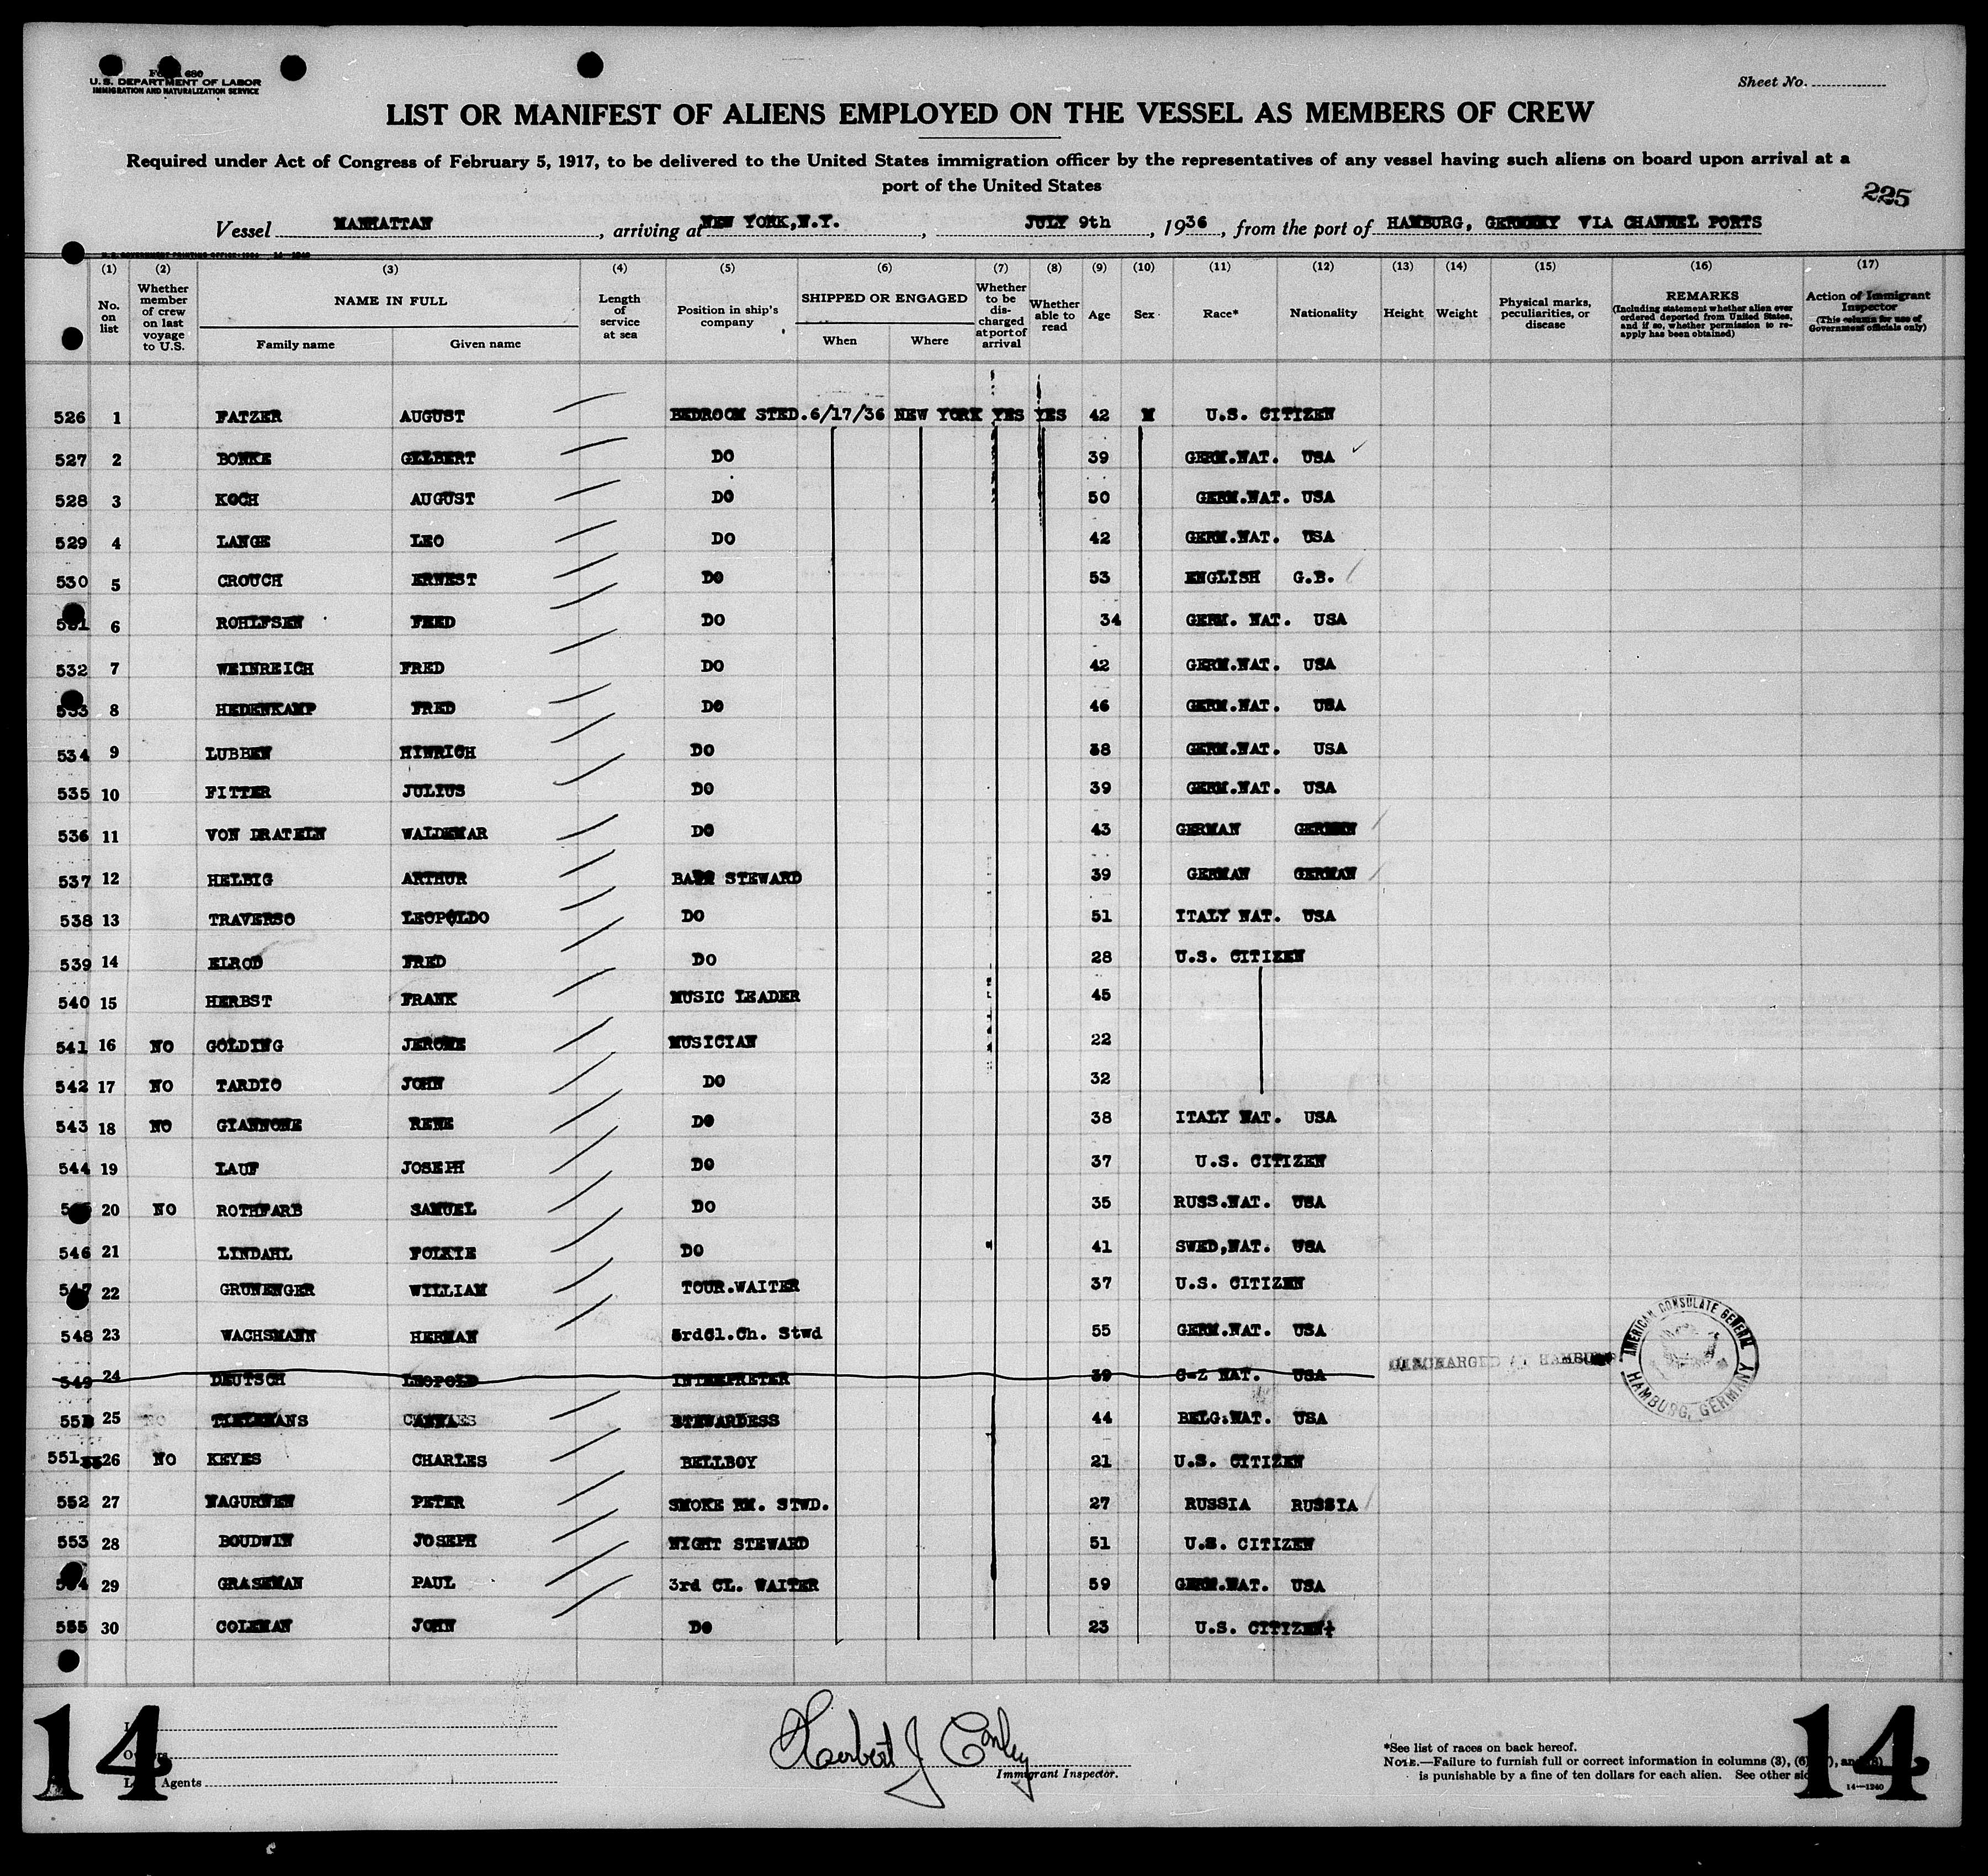 Form 680
U. S. DEPARTMENT OF LABOR
IMMIGRATION AND NATURALIZATION SERVICE
Sheet No.
LIST OR MANIFEST OF ALIENS EMPLOYED ON THE VESSEL AS MEMBERS OF CREW
Required under Act of Congress of February 5, 1917, to be delivered to the United States immigration officer by the representatives of any vessel having such aliens on board upon arrival at a
port of the United States
225
Vessel MANHATTAN, arriving at NEW YORK, N.Y., JULY 9th, 1936, from the port of HAMBURG, GERMANY VIA CHANNEL PORTS
(1) (2) (3) (4) (5) (6) (7) (8) (9) (10) (11) (12) (13) (14) (15) (16) (17)
No. on list
Whether member of crew on last voyage to U.S.
NAME IN FULL
Family name Given name
Length of service at sea
Position in ship's company
SHIPPED OR ENGAGED
When Where
Whether to be discharged at port of arrival
Whether able to read
Age
Sex
Race*
Nationality
Height
Weight
Physical marks, peculiarities, or disease
REMARKS
(Including statement whether alien ever ordered deported from United States, and if so, whether permission to reapply has been obtained)
Action of Immigrant Inspector
(This column for use of Government officials only)
526 1 FATZER AUGUST BEDROOM STED. 6/17/36 NEW YORK YES YES 42 M U.S. CITIZEN
527 2 BONKE GILBERT DO 39 GERM.NAT. USA
528 3 KOCH AUGUST DO 50 GERM.NAT. USA
529 4 LANGE LEO DO 42 GERM.NAT. USA
530 5 CROUCH ERNEST DO 53 ENGLISH G.B.
531 6 ROHLFSEN FRED DO 34 GERM. NAT. USA
532 7 WEINREICH FRED DO 42 GERM.NAT. USA
533 8 HEDENKAMP FRED DO 46 GERM.NAT. USA
534 9 LUBBEN HINRICH DO 38 GERM.NAT. USA
535 10 FITTER JULIUS DO 39 GERM.NAT. USA
536 11 VON DRATELN WALDEMAR DO 43 GERMAN GERMAN
537 12 HELBIG ARTHUR STEWARD 39 GERMAN GERMAN
538 13 TRAVERSO LEOPOLDO DO 51 ITALY NAT. USA
539 14 ELROD FRED DO 28 U.S. CITIZEN
540 15 HERBST FRANK MUSIC LEADER 45
541 16 NO GOLDING JEROME MUSICIAN 22
542 17 NO TARDIO JOHN DO 32
543 18 NO GIANNONE RENE DO 38 ITALY NAT. USA
544 19 LAUF JOSEPH DO 37 U.S. CITIZEN
545 20 NO ROTHFARB SAMUEL DO 35 RUSS.NAT. USA
546 21 LINDAHL FOLKIE DO 41 SWED,NAT. USA
547 22 GRUNENGER WILLIAM TOUR.WAITER 37 U.S. CITIZEN
548 23 WACHSMANN HERMAN 3rdCl.Ch. Stwd 55 GERM.NAT. USA
549 24 DEUTSCH LEOPOLD INTERPRETER 39 C-Z NAT. USA DISCHARGED AT HAMBURG
AMERICAN CONSULATE GENERAL HAMBURG, GERMANY
25 NO STEWARDESS 44 BELG.NAT. USA
551 26 NO KEYES CHARLES BELLBOY 21 U.S. CITIZEN
552 27 NAGURNEN PETER SMOKE RM. STWD. 27 RUSSIA RUSSIA
553 28 BOUDWIN JOSEPH NIGHT STEWARD 51 U.S. CITIZEN
554 29 GRASEMAN PAUL 3rd CL. WAITER 59 GERM.NAT. USA
555 30 COLEMAN JOHN DO 23 U.S. CITIZEN
14
Owners
Local Agents
Herbert J Conley
Immigrant Inspector.
*See list of races on back hereof.
NOTE.—Failure to furnish full or correct information in columns (3), (6), (7), and (8)
is punishable by a fine of ten dollars for each alien. See other side.
14—1240
14